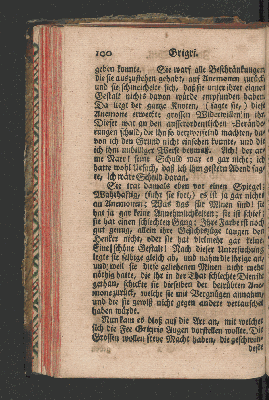 100 Grigri.
geben konnte. Sie warf alle Beschränkungen,
die sie auszustehen gehabt, auf Anemonen zurück;
und sie schmeichelte sich, daß sie unter ihrer
Gestalt nichts davon würde empfunden haben.
Da liegt der gantze Knoten, (sagte sie,) diese
Anemone erweckte grossen Widerwillen in ihr.
Dieser war an den ausserordentlichen Verände-
rungen schuld, die ihn so
von ich den Grund nicht einsehen konnte, und die
ich ihm unbilliger Weise Ach! der ar-
me Narr! seine Schuld war es gar nicht; ich
hatte wohl Ursach, daß ich ihm gestern Abend sag-
te, ich wäre Schuld daran.
Sie trat damals eben vor einen Spiegel:
Wahrhaftig, (fuhr sie fort,) es ist ja gar nichts
an Anemonen: Was das für Minen sind! sie
hat ja gar keine Annehmlichkeiten; sie ist schief;
sie hat einen schlechten Gang: Ihre Farbe ist noch
gut genug, allein ihre Gesichtszüge taugen den
Henker nicht, oder sie hat vielmehr gar keine.
Eine schöne Gestalt! Nach dieser Untersuchung
legte sie selbige gleich ab, und nahm die ihrige an,
und weil sie diese geliehenen Minen nicht mehr
nöthig hatte, die ihr in der That schlechte Dienste
gethan, schickte sie dieselben der betrübten Ane-
mone zurück, welche sie mit Vergnügen annahm,
und die sie gewiß nicht gegen andere vertauschet
haben würde.
Nun kam es bloß auf die Art an, mit welcher
sich die Fee Grigri Augen vorstellen wollte. Die
Grossen wollen stets Macht haben, die geschwin-
deste